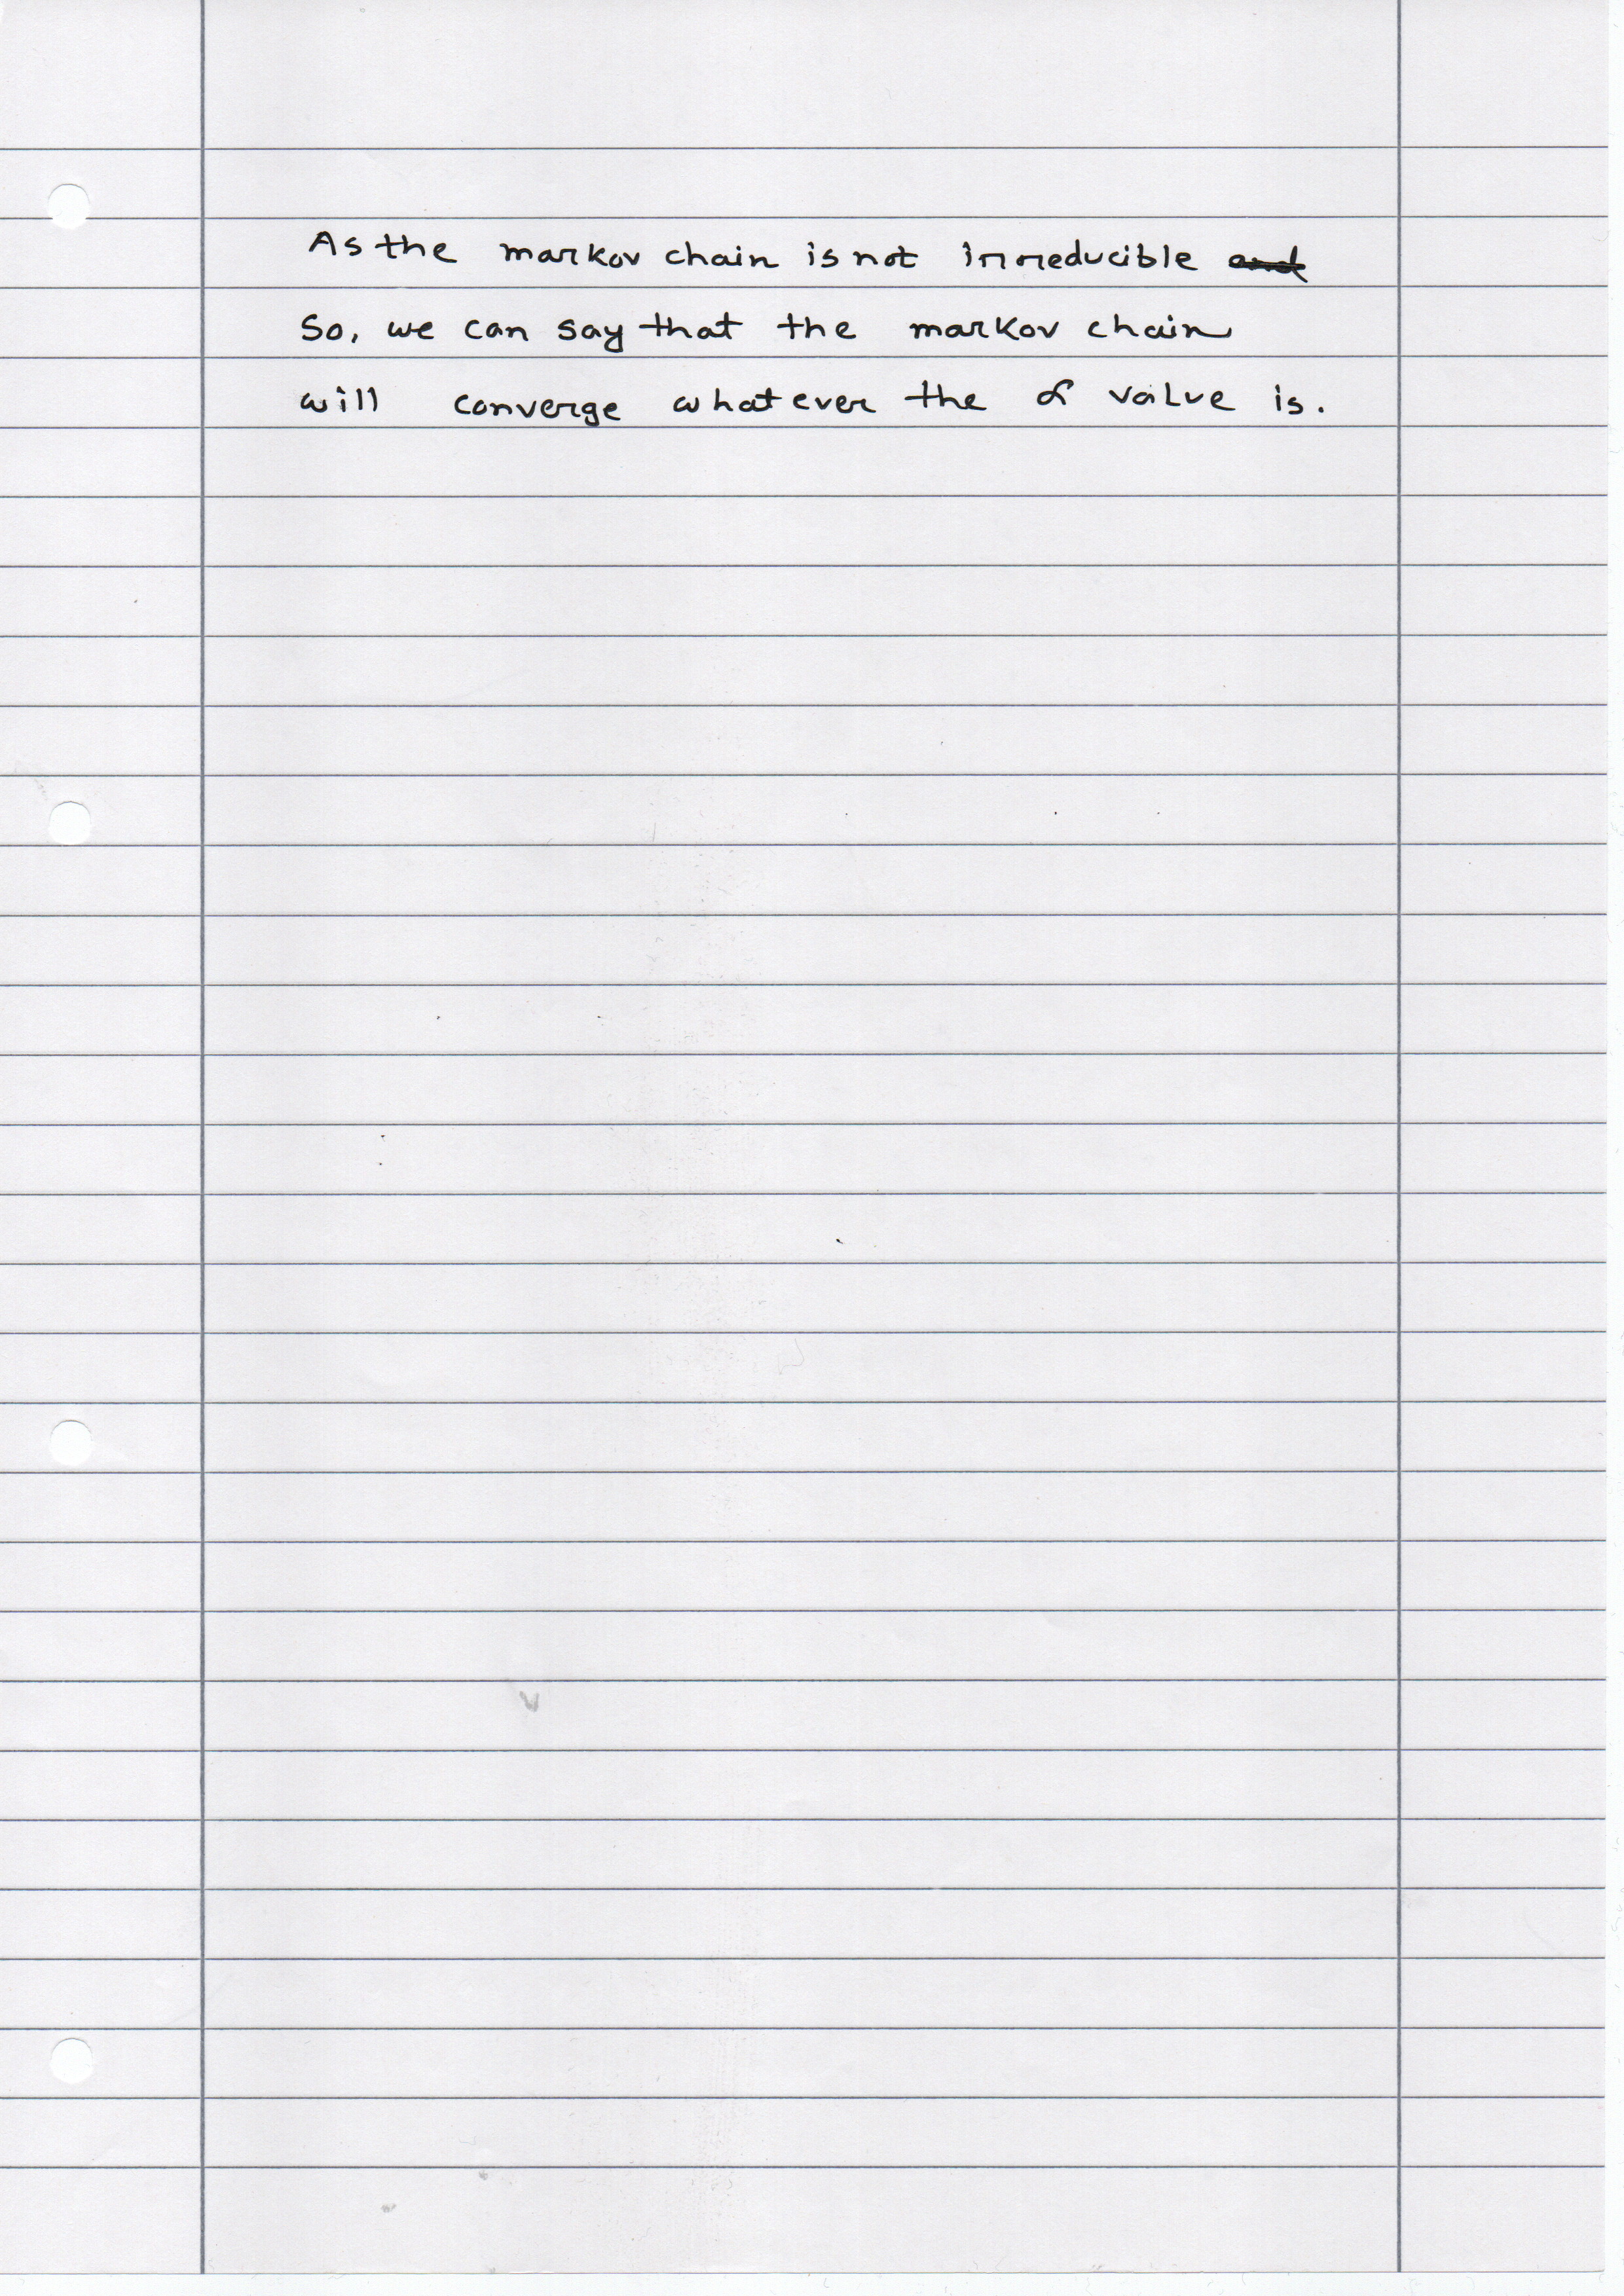 As the markov chain is not irreducible
So, we can say that the markov chain
will converge whatever the α value is.